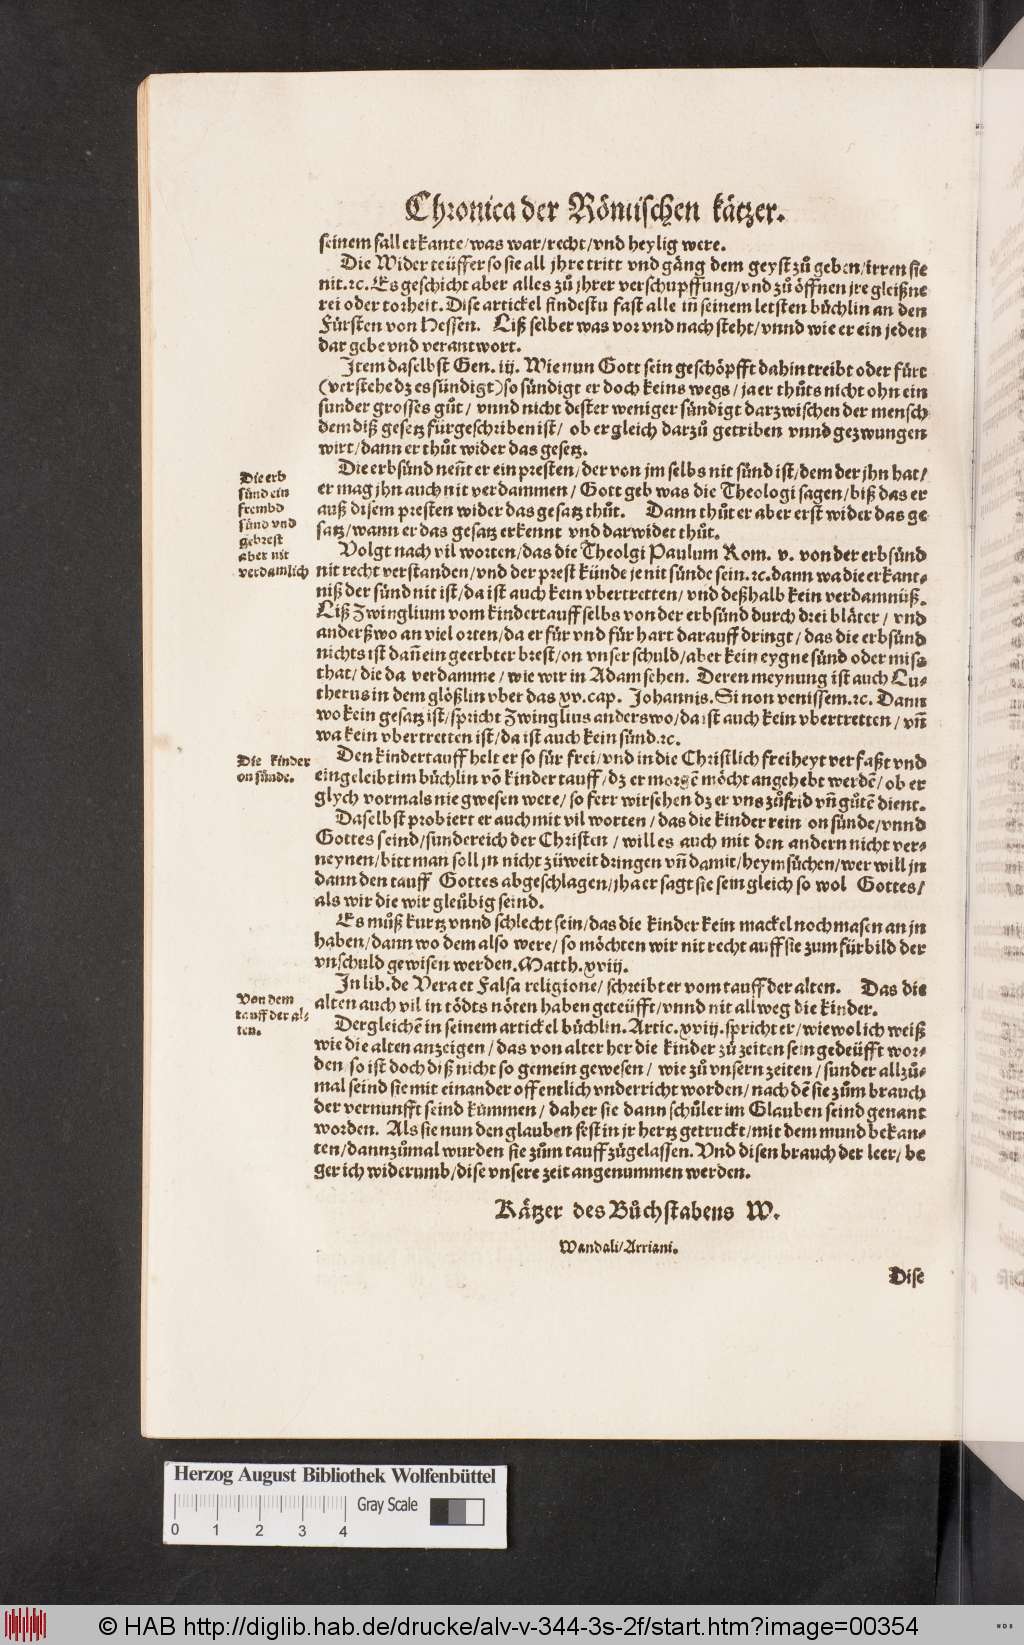 Chronica der Römischen kätzer.
seinem fall erkante/was war/recht/vnd heylig were.
Die Widerteüffer so sie all jhre tritt vnd gäng dem geyst zů geben/irren sie
nit.ꝛc. Es geschicht aber alles zů jhrer verschupffung/vnd zů öffnen jre gleißne
rei oder torheit. Dise artickel findestu fast alle iñ seinem letsten büchlin an den
Fürsten von Hessen. Liß selber was vor vnd nach steht/vnnd wie er ein jeden
dar gebe vnd verantwort.
Item daselbst Gen. iij. Wie nun Gott sein geschöpfft dahin treibt oder fürt
(verstehe dz es sündigt) so sündigt er doch keins wegs/ja er thůts nicht ohn ein
sunder grosses gůt/ vnnd nicht dester weniger sündigt darzwischen der mensch
dem diß gesetz fürgeschriben ist/ ob er gleich darzů getriben vnnd gezwungen
wirt/dann er thůt wider das gesetz.
Die erbsünd neñt er ein presten/der von jm selbs nit sünd ist/dem der jhn hat/
er mag jhn auch nit verdammen/Gott geb was die Theologi sagen/biß das er
auß disem presten wider das gesatz thůt. Dann thůt er aber erst wider das ge
satz/wann er das gesatz erkennt vnd darwidet thůt.
Die erb
sünd ein
frembd
sünd vnd
gebrest
aber nit
verdamlich
Volgt nach vil worten/das die Theolgi Paulum Rom. v. von der erbsünd
nit recht verstanden/vnd der prest künde je nit sünde sein.ꝛc. dann wa die erkant-
niß der sünd nit ist/da ist auch kein vbertretten/ vnd deßhalb kein verdamnüß.
Liß Zwinglium vom kindertauff selbs von der erbsünd durch drei bläter/ vnd
anderßwo an viel orten/da er für vnd für hart darauff dringt/das die erbsünd
nichts ist dañ ein geerbter brest/on vnser schuld/aber kein eygne sünd oder miss
that/die da verdamme/wie wir in Adam sehen. Deren meynung ist auch Lu-
therus in dem glößlin vber das xv. cap. Johannis. Si non venissem.ꝛc. Dann
wo kein gesatz ist/spricht Zwinglius anderswo/da ist auch kein vbertretten/vñ
wa kein vbertretten ist/da ist auch kein sünd.ꝛc.
Die kinder
on sünde.
Den kindertauff helt er so für frei/vnd in die Christlich freiheyt verfaßt vnd
eingeleibt im büchlin võ kinder tauff/dz er morgẽ möcht angehebt werdẽ/ob er
glych vormals nie gwesen were/so ferr wir sehen dz er vns zůfrid vñ gůtẽ dient.
Daselbst probiert er auch mit vil worten/das die kinder rein on sünde/vnnd
Gottes seind/sundereich der Christen/will es auch mit den andern nicht ver-
neynen/bitt man soll jn nicht zůweit dringen vñ damit/heymsůchen/wer will jn
dann den tauff Gottes abgeschlagen/jha er sagt sie sein gleich so wol Gottes/
als wir die wir gleübig seind.
Es můß kurtz vnnd schlecht sein/das die kinder kein mackel noch masen an jn
haben/dann wo dem also were/so möchten wir nit recht auff sie zum fürbild der
vnschuld gewisen werden. Matth. xviij.
In lib. de Vera et Falsa religione/schreibt er vom tauff der alten. Das die
alten auch vil in tödts nöten haben geteüfft/vnnd nit allweg die kinder.
Von dem
tauff der al-
ten.
Dergleichẽ in seinem artickel büchlin. Artic. xviij. spricht er/wiewol ich weiß
wie die alten anzeigen/das von alter her die kinder zů zeiten sein gedeüfft wor-
den/so ist doch diß nicht so gemein gewesen/ wie zů vnsern zeiten/sunder allzů-
mal seind sie mit einander offentlich vnderricht worden/nach dẽ sie zům brauch
der vernunfft seind kummen/daher sie dann schůler im Glauben seind genant
worden. Als sie nun den glauben fest in jr hertz getruckt/mit dem mund bekan-
ten/dannzůmal wurden sie zům tauff zůgelassen. Vnd disen brauch der leer/be
ger ich widerumb/dise vnsere zeit angenummen werden.
Kätzer des Bůchstabens W.
Wandali/Arriani.
Dise
Herzog August Bibliothek Wolfenbüttel
Gray Scale
0 1 2 3 4
© HAB http://diglib.hab.de/drucke/alv-v-344-3s-2f/start.htm?image=00354